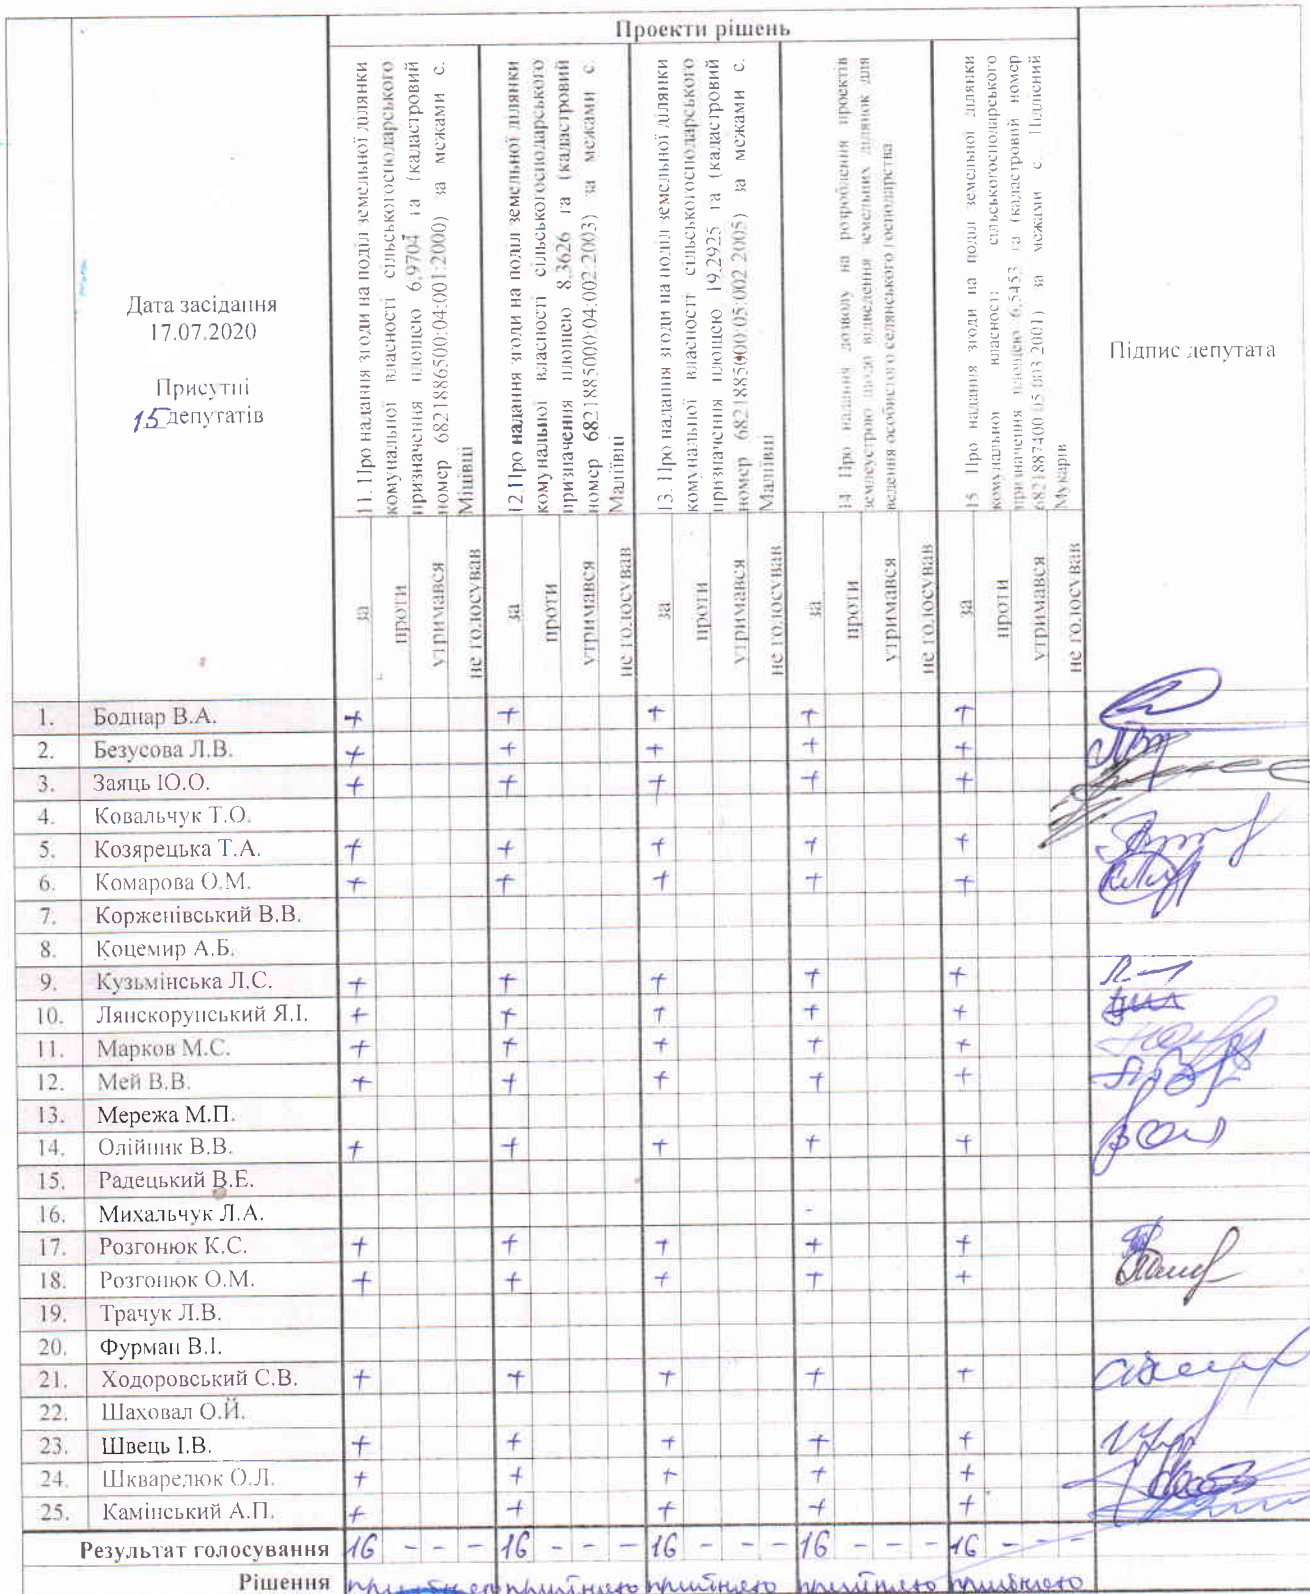 Проекти рішень
Дата засідання
17.07.2020
Присутні
15 депутатів
11. Про надання згоди на поділ земельної ділянки
комунальної власності сільськогосподарського
призначення площею 6,9704 га (кадастровий
номер 6821886500:04:001:2000) за межами с.
Мішівці
12 Про надання згоди на поділ земельної ділянки
комунальної власності сільськогосподарського
призначення площею 8,3626 га (кадастровий
номер 6821885000:04:002:2003) за межами с.
Маліївці
13. Про надання згоди на поділ земельної ділянки
комунальної власності сільськогосподарського
призначення площею 19,2925 га (кадастровий
номер 6821885000:05:002:2005) за межами с.
Маліївці
14 Про надання дозволу на розроблення проектів
землеустрою щодо відведення земельних ділянок для
ведення особистого селянського господарства
15 Про надання згоди на поділ земельної ділянки
комунальної власності сільськогосподарського
призначення площею 6,5453 га (кадастровий номер
6821887400:05:003:2001) за межами с. Підлісний
Мукарів
Підпис депутата
за проти утримався не голосував за проти утримався не голосував за проти утримався не голосував за проти утримався не голосував за проти утримався не голосував
1. Боднар В.А. + + + + +
2. Безусова Л.В. + + + + +
3. Заяць Ю.О. + + + + +
4. Ковальчук Т.О.
5. Козярецька Т.А. + + + + +
6. Комарова О.М. + + + + +
7. Корженівський В.В.
8. Коцемир А.Б.
9. Кузьмінська Л.С. + + + + +
10. Лянскорунський Я.І. + + + + +
11. Марков М.С. + + + + +
12. Мей В.В. + + + + +
13. Мережа М.П.
14. Олійник В.В. + + + + +
15. Радецький В.Е.
16. Михальчук Л.А. -
17. Розгонюк К.С. + + + + +
18. Розгонюк О.М. + + + + +
19. Трачук Л.В.
20. Фурман В.І.
21. Ходоровський С.В. + + + + +
22. Шаховал О.Й.
23. Швець І.В. + + + + +
24. Шкварелюк О.Л. + + + + +
25. Камінський А.П. + + + + +
Результат голосування 16 - - - 16 - - - 16 - - - 16 - - - 16 - - -
Рішення прийнято прийнято прийнято прийнято